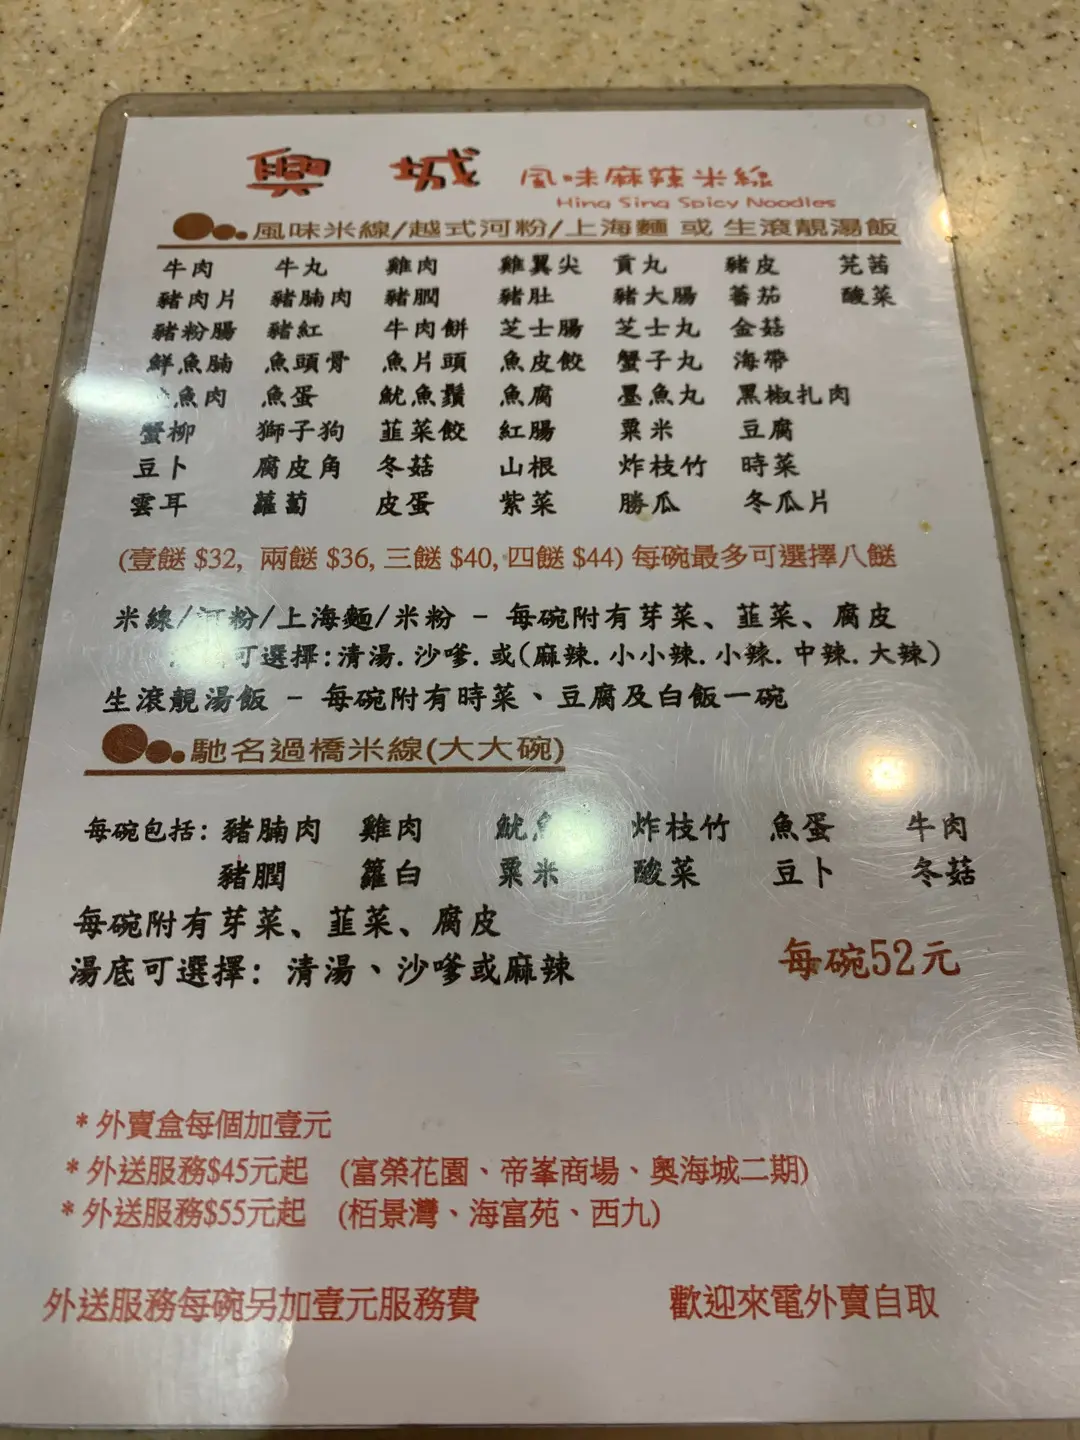 興 城 風味麻辣米線
Hing Sing Spicy Noodles
風味米線/越式河粉/上海麵 或 生滾靚湯飯
牛肉 牛丸 雞肉 雞翼尖 貢丸 豬皮 芫茜
豬肉片 豬腩肉 豬膶 豬肚 豬大腸 蕃茄 酸菜
豬粉腸 豬紅 牛肉餅 芝士腸 芝士丸 金菇
鮮魚腩 魚頭骨 魚片頭 魚皮餃 蟹子丸 海帶
魚肉 魚蛋 魷魚鬚 魚腐 墨魚丸 黑椒扎肉
蟹柳 獅子狗 韮菜餃 紅腸 粟米 豆腐
豆卜 腐皮角 冬菇 山根 炸枝竹 時菜
雲耳 蘿蔔 皮蛋 紫菜 勝瓜 冬瓜片
(壹餸 $32, 兩餸 $36, 三餸 $40, 四餸 $44) 每碗最多可選擇八餸
米線/河粉/上海麵/米粉 - 每碗附有芽菜、韮菜、腐皮
可選擇:清湯.沙嗲.或(麻辣.小小辣.小辣.中辣.大辣)
生滾靚湯飯 - 每碗附有時菜、豆腐及白飯一碗
馳名過橋米線(大大碗)
每碗包括: 豬腩肉 雞肉 魷魚 炸枝竹 魚蛋 牛肉
豬膶 籮白 粟米 酸菜 豆卜 冬菇
每碗附有芽菜、韮菜、腐皮
湯底可選擇: 清湯、沙嗲或麻辣
每碗52元
* 外賣盒每個加壹元
* 外送服務$45元起 (富榮花園、帝峯商場、奧海城二期)
* 外送服務$55元起 (栢景灣、海富苑、西九)
外送服務每碗另加壹元服務費 歡迎來電外賣自取